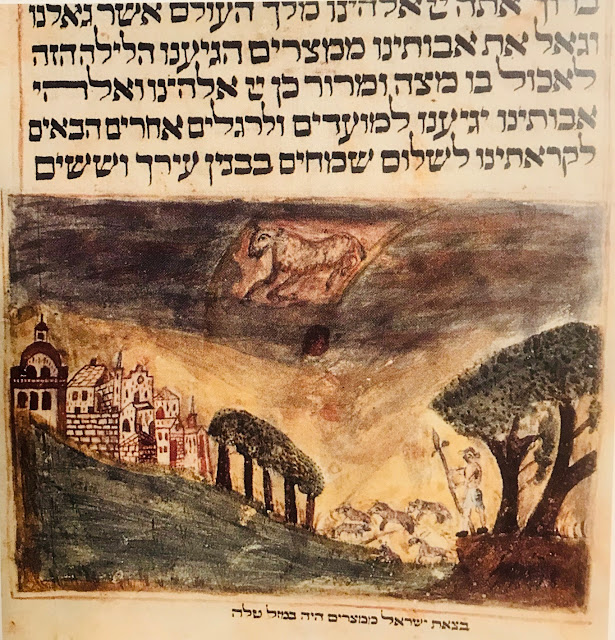 ברוך אתה יי אלהינו מלך העולם אשר גאלנו
וגאל את אבותינו ממצרים הגיענו הלילה הזה
לאכול בו מצה ומרור כן יי אלהינו ואלהי
אבותינו יגיענו למועדים ולרגלים אחרים הבאים
לקראתינו לשלום שמחים בבנין עירך וששים
בצאת ישראל ממצרים היה במזל טלה